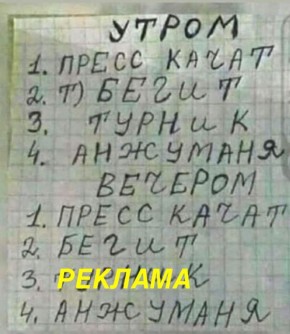 УТРОМ
1. ПРЕСС КАЧАТ
2. Т) БЕГИТ
3. ТУРНИК
4. АНЖУМАНЯ
ВЕЧЕРОМ
1. ПРЕСС КАЧАТ
2. БЕГИТ
3. РЕКЛАМА К
4. АНЖУМАНЯ